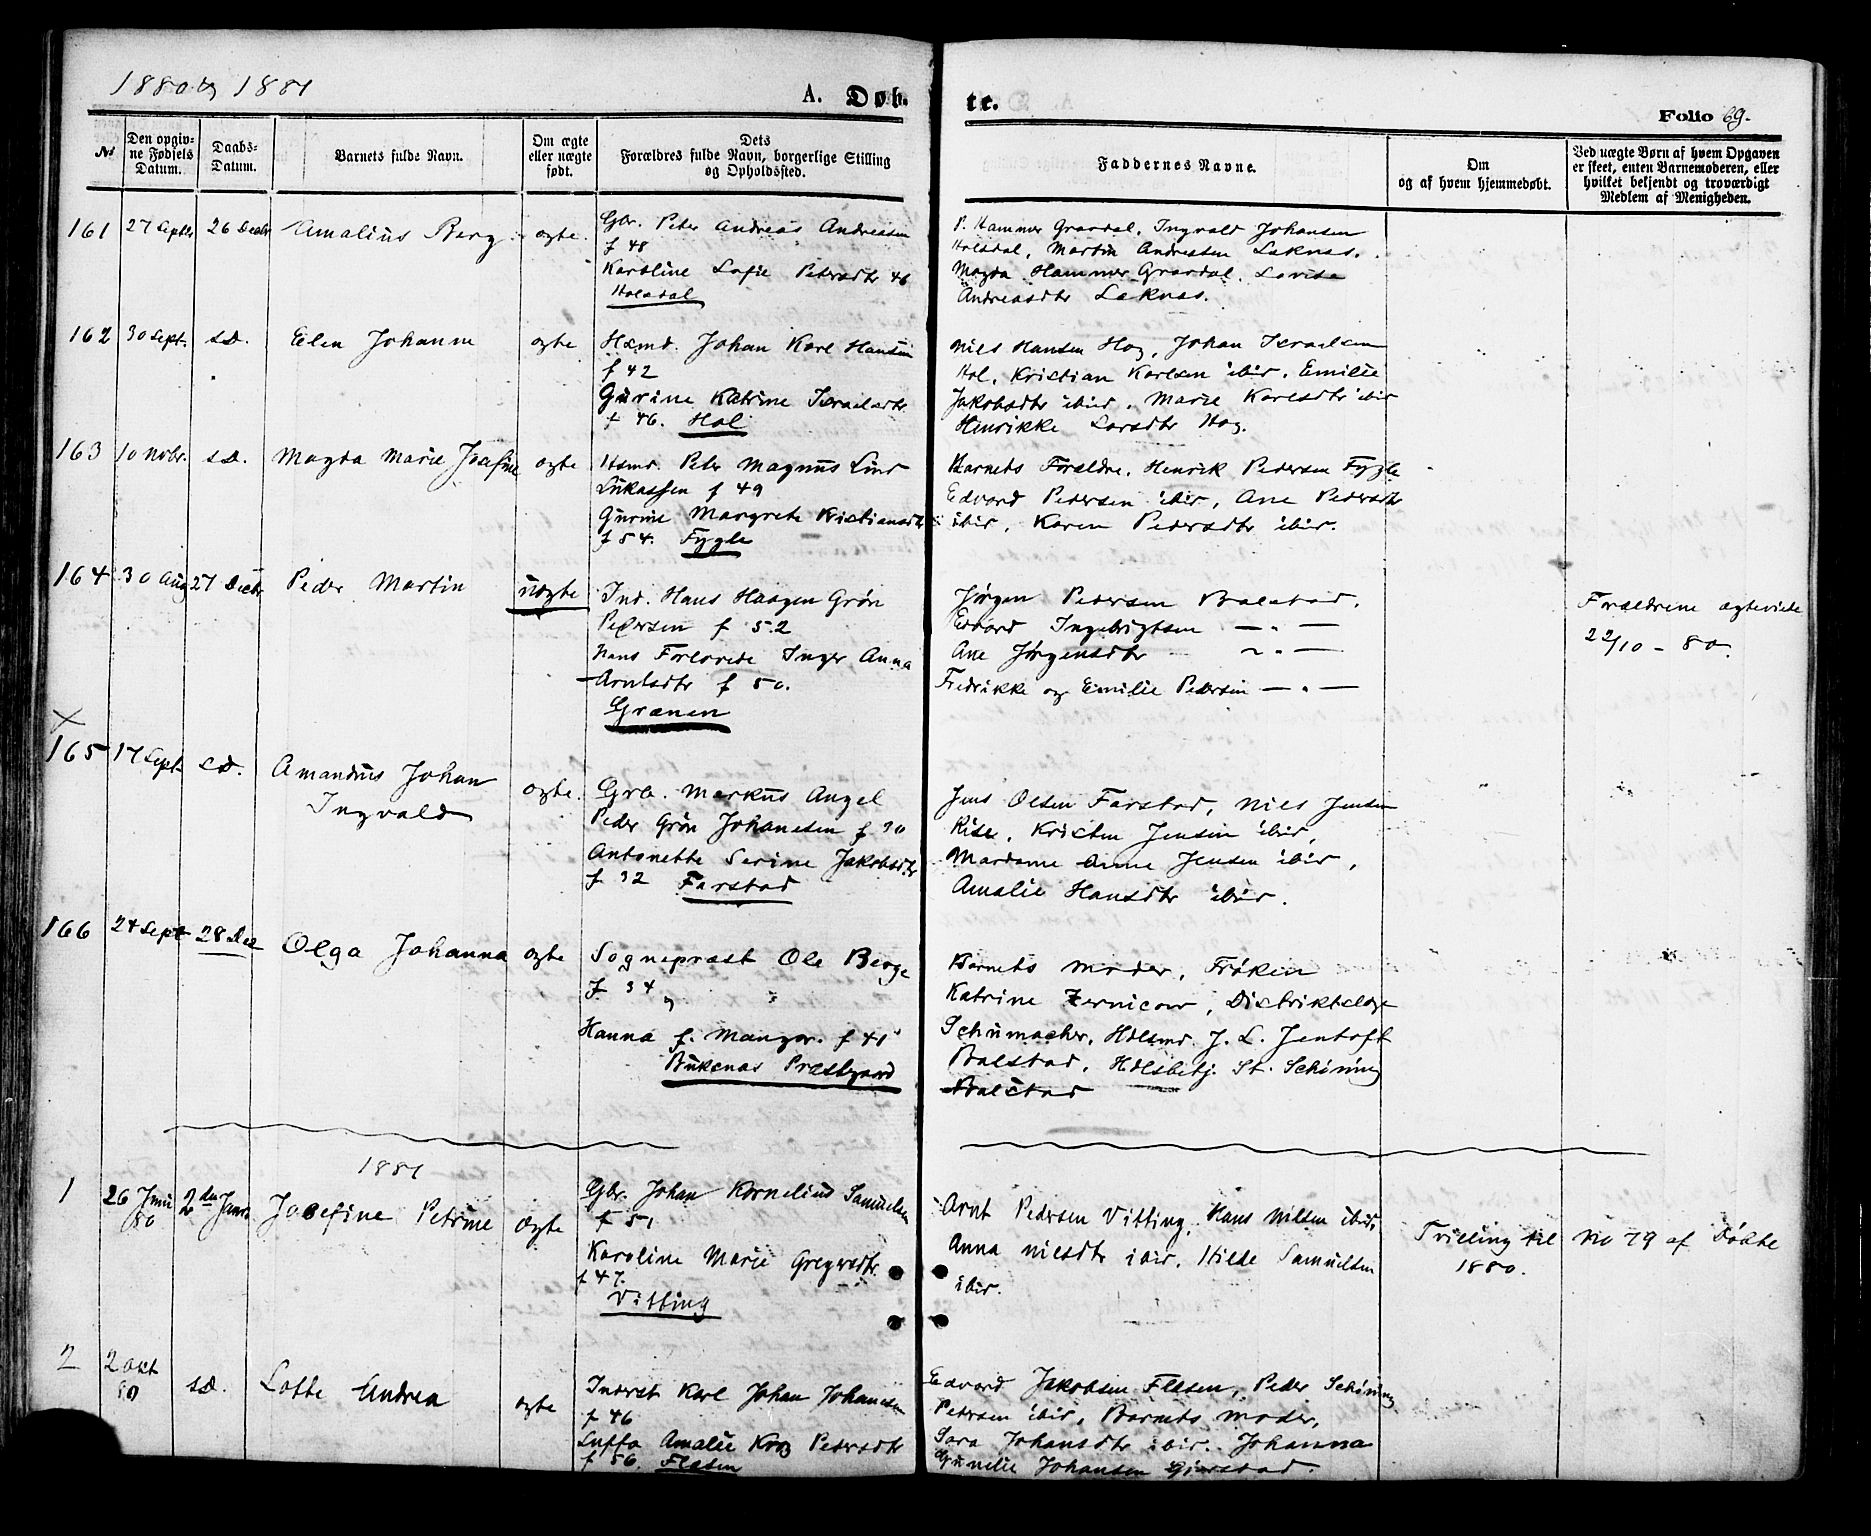 1880 & 1881
A. Døb
te.
Folio 69.
No
Den opgivne Fødsels Datum.
Daabs-Datum.
Barnets fulde Navn.
Om ægte eller uægte født.
Dets Forældres fulde Navn, borgerlige Stilling og Opholdssted.
Faddernes Navne.
Om og af hvem hjemmedøbt.
Ved uægte Børn af hvem Opgaven er skeet, enten Barnemoderen, eller hvilket bekjendt og troværdigt Medlem af Menigheden.
161 27 Septbr 26 Decbr Amalius Berg ægte.
Gbr. Peter Andreas Andreasen
f 48
Karoline Sofie Petersdtr 46
Holsdal
P. Hammer Graadal, Ingvald Johansen
Holsdal, Martin Andreasen Leknes.
Magda Hammer Graadal, Lovise
Andreasdtr Leknes.
162 30 Sept. s.d. Elen Johanne ægte
Hsmd. Johan Karl Hansen
f 42
Gurine Katrine Israelsdtr
f 46. Hol
Nils Hansen Hag, Johan Israelsen
Hol, Kristian Karlsen ibid, Emilie
Jakobsdtr ibid, Marie Karlsdtr ibid
Henrikke Larsdtr Hag.
163 10 Novbr. s.d. Magda Marie Josefine ægte
Hsmd. Peter Magnus Lind
Lukassen f 49
Gurine Margrete Kristiansdtr
f 54. Fygle
Barnets Forældre, Henrik Pedersen Fygle
Edvard Pedersen ibid, Ane Pedersdtr
ibid, Karen Pedersdtr ibid.
164 30 Aug 27 Decbr Peder Martin uægte
Ind. Hans Haagen Grøn
Pedersen f 52
Hans Forlovede Inger Anna
Arntsdtr f 50.
Grænen
Jørgen Pedersen Balstad.
Edvard Ingebrigtsen — " —
Ane Jørgensdtr — " —
Fredrikke og Emilie Pedersen — " —
Forældrene ægteviede
22/10 - 80.
X
165 17 Sept. s.d. Amandus Johan
Ingvald
ægte.
Grb. Markus Angel
Peder Grøn Johanesen f 30
Antonette Serine Jakobsdtr
f 32 Farstad
Jens Olsen Farstad, Nils Jensen
Rise, Kristen Jensen ibid,
Madame Anne Jensen ibid,
Amalie Hansdtr ibid.
166 24 Sept 28 Dec Olga Johanna ægte
Sogneprest Ole Berge
f. 34
Hanna f. Manger. f 41
Buksnes Prestgaard
Barnets Moder, Frøken
Katrine Zernicow, Distriktslæge
Schumacher, Hdlsmd. J. L. Jentoft
Balstad, Hdlsbetj. St. Schøning
Balstad
1881
1 26 Juni 80 2den Janr Josefine Petrine ægte
Gbr. Johan Kornelius Samuelsen
f 51
Karoline Marie Gregersdtr
f 47.
Vitting
Arnt Pedersen Vitting, Hans Nilsen ibid,
Anna Nilsdtr ibid, Hilde Samuelsen
ibid.
Tvilling til No 79 af Døbte
1880.
2 2 Okt 80 s.d. Lotte Andrea ægte
Inderst Karl Johan Johansen
f 46
Luffa Amalie Krog Pedersdtr
f 56. Flæsen
Edvard Jakobsen Flæsen, Peder Schøning
Petersen ibid, Barnets Moder,
Sara Johansdtr ibid. Johanna
Gunelie Johansen Gjerstad.